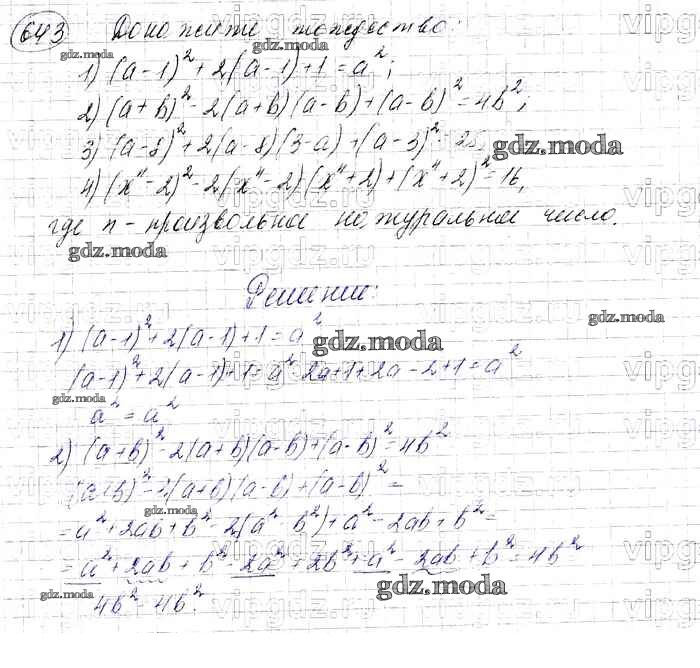 643 Докажите тождество:
1) (a-1)² + 2(a-1) + 1 = a²;
2) (a+b)² - 2(a+b)(a-b) + (a-b)² = 4b²;
3) (a-8)² + 2(a-8)(3-a) + (a-3)² = 25;
4) (xⁿ-2)² - 2(xⁿ-2)(xⁿ+2) + (xⁿ+2)² = 16,
где n - произвольное натуральное число.
gdz.moda
Решение:
1) (a-1)² + 2(a-1) + 1 = a²
(a-1)² + 2(a-1) + 1 = a² - 2a + 1 + 2a - 2 + 1 = a²
a² = a²
2) (a+b)² - 2(a+b)(a-b) + (a-b)² = 4b²
(a+b)² - 2(a+b)(a-b) + (a-b)² =
= a² + 2ab + b² - 2(a² - b²) + a² - 2ab + b² =
= a² + 2ab + b² - 2a² + 2b² + a² - 2ab + b² = 4b²
4b² = 4b².
gdz.moda